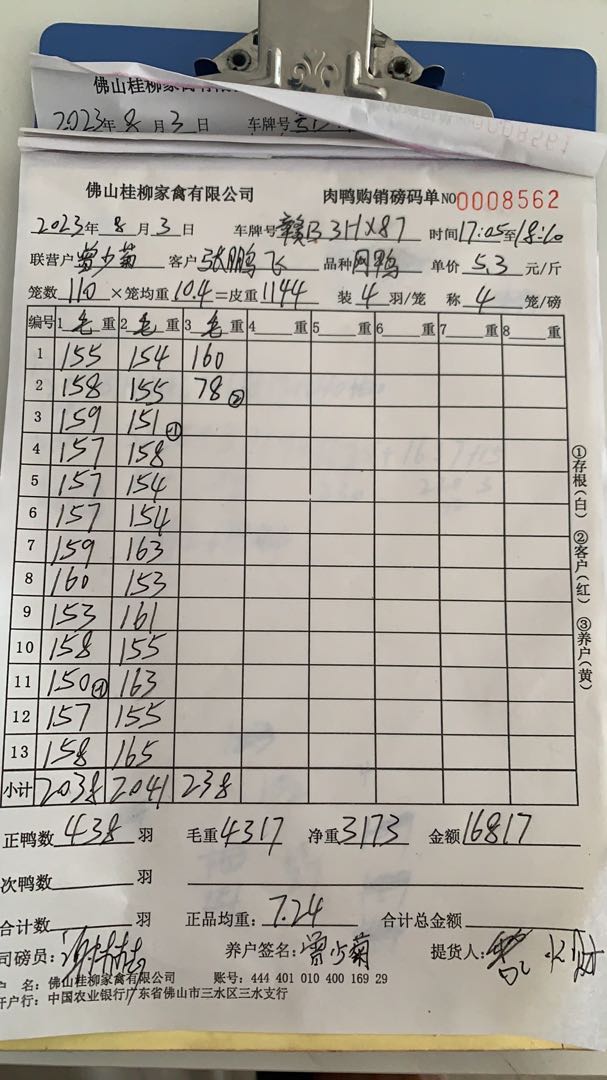 佛山桂柳家禽有限
2023年8月3日 车牌号
0008561
佛山桂柳家禽有限公司 肉鸭购销磅码单NO 0008562
2023年8月3日 车牌号 赣B3HX87 时间17:05至18:10
联营户曾少菊 客户张鹏飞 品种网鸭 单价5.3元/斤
笼数110×笼均重10.4=皮重1144 装4羽/笼 称4笼/磅
编号 1毛重 2毛重 3毛重 4重 5重 6重 7重 8重
1 155 154 160
2 158 155 78②
3 159 151⊖1
4 157 158
5 157 154
6 157 154
7 159 163
8 160 153
9 153 161
10 158 155
11 150⊖1 163
12 157 155
13 158 165
小计 2038 2041 238
①存根(白) ②客户(红) ③养户(黄)
正鸭数438羽 毛重4317 净重3173 金额16817
次鸭数 羽
合计数 羽 正品均重:7.24 合计总金额
司磅员: 养户签名:曾少菊 提货人:
户 名:佛山桂柳家禽有限公司 账号:444 401 010 400 169 29
开户行:中国农业银行广东省佛山市三水区三水支行